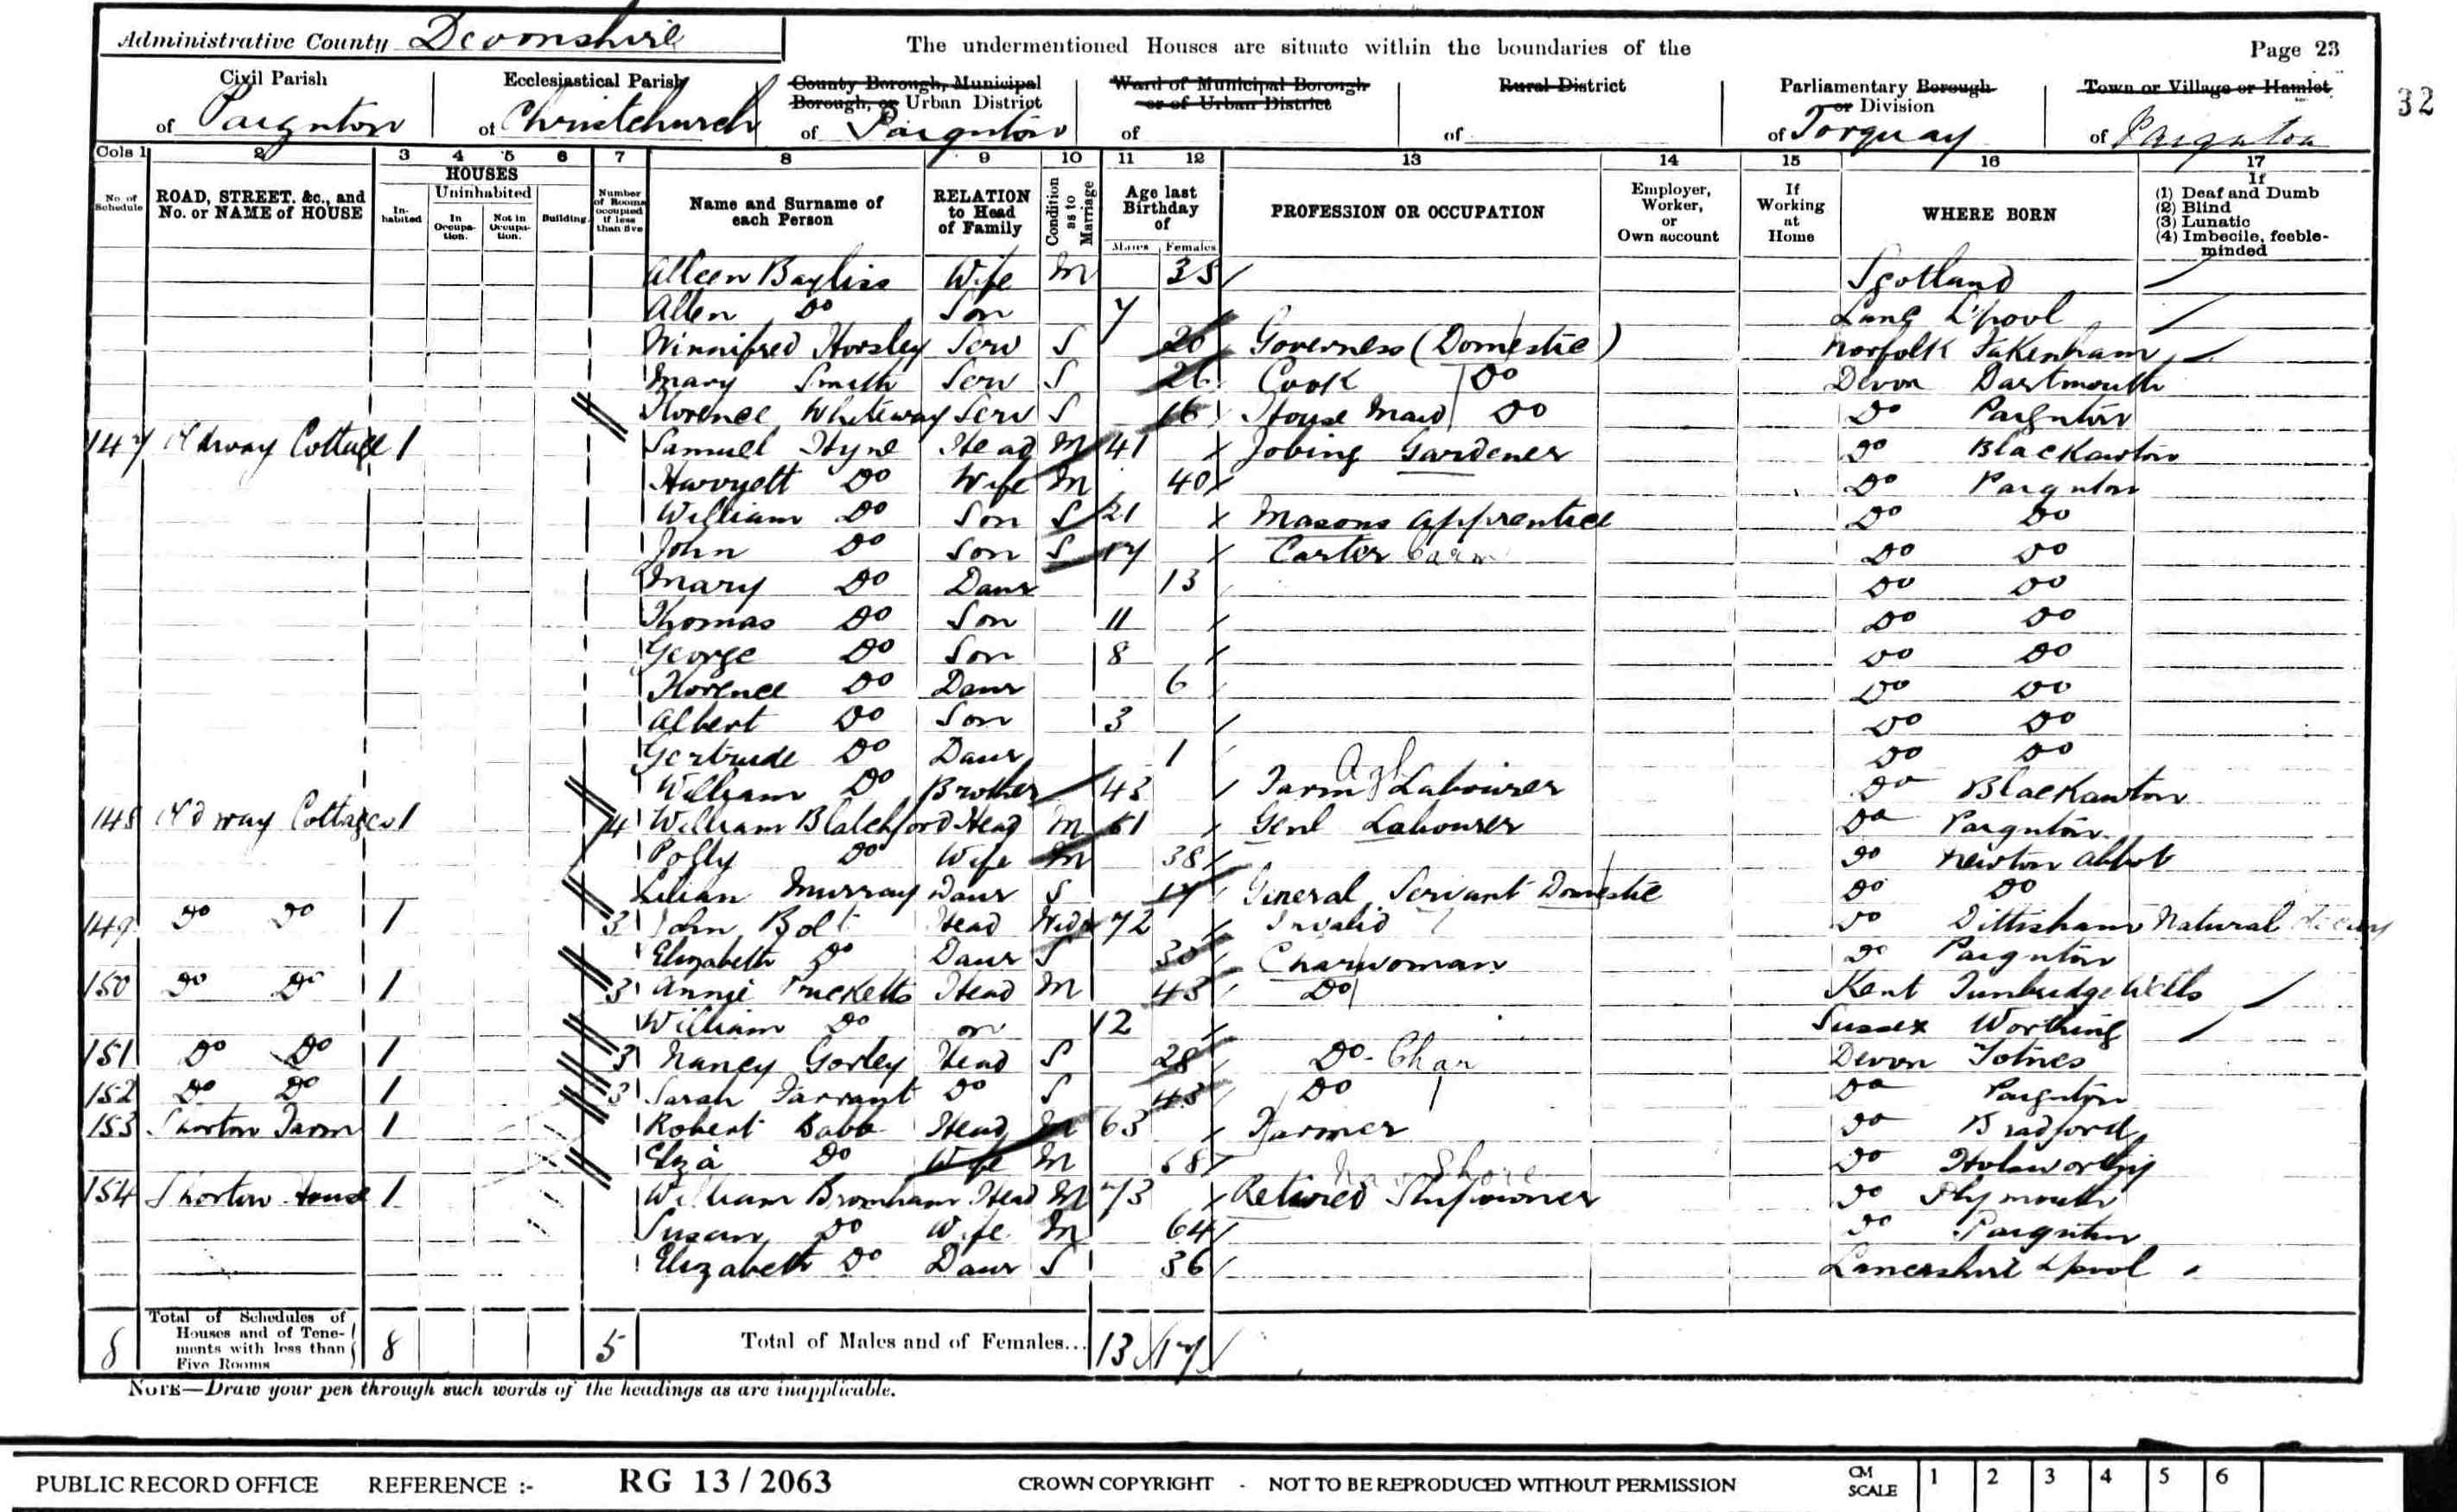 Administrative County Devonshire The undermentioned Houses are situate within the boundaries of the Page 23
32
Civil Parish of Paignton
Ecclesiastical Parish of Christchurch
County Borough, Municipal Borough, or Urban District of Paignton
Ward of Municipal Borough or of Urban District of
Rural District of
Parliamentary Borough or Division of Torquay
Town or Village or Hamlet of Paignton
Cols 1 2 3 4 5 6 7 8 9 10 11 12 13 14 15 16 17
No. of Schedule
ROAD, STREET, &c., and No. or NAME of HOUSE
HOUSES
Inhabited
Uninhabited
In Occupation.
Not in Occupation.
Building.
Number of Rooms occupied if less than five
Name and Surname of each Person
RELATION to Head of Family
Condition as to Marriage
Age last Birthday of
Males Females
PROFESSION OR OCCUPATION
Employer, Worker, or Own account
If Working at Home
WHERE BORN
If
(1) Deaf and Dumb
(2) Blind
(3) Lunatic
(4) Imbecile, feeble-minded
Bayliss Wife M 38 Scotland
Allen Do Son 7 Lanc L'pool
Winnifred Horsley Serv S 26 Governess (Domestic) Norfolk Fakenham
Mary Smith Serv S 26 Cook Do Devon Dartmouth
Florence Whiteway Serv S 16 House Maid Do Do Paignton
147 Cottage 1 Samuel Hyne Head M 41 Jobing Gardener Do Blackawton
Harryett Do Wife M 40 Do Paignton
William Do Son S 21 Masons apprentice Do Do
John Do Son S 17 Carter Do Do
Mary Do Daur 13 Do Do
Thomas Do Son 11 Do Do
George Do Son 8 Do Do
Florence Do Daur 6 Do Do
Albert Do Son 3 Do Do
Gertrude Do Daur 1 Do Do
William Do Brother 43 Farm Agl Labourer Do Blackawton
148 Cottages 1 4 William Blatchford Head M 61 Genl Labourer Do Paignton
Polly Do Wife M 38 Do Newton Abbot
Lilian Murray Daur S 17 General Servant Domestic Do Do
149 Do Do 1 3 John Bolt Head Widr 72 Invalid Do Dittisham Natural
Elizabeth Do Daur S 30 Charwoman Do Paignton
150 Do Do 1 3 Annie Head M 43 Do Kent Tunbridge Wells
William Do on 12 Sussex Worthing
151 Do Do 1 3 Nancy Gorley Head S 28 Do Char Devon Totnes
152 Do Do 1 3 Sarah Tarrant Do S 43 Do Do Paignton
153 Shorton Farm 1 Robert Babb Head M 63 Farmer Do Bradford
Eliza Do Wife M 68 Do Holsworthy
154 Shorton House 1 William Bromham Head M 73 Retired Shipowner Do Plymouth
Susan Do Wife M 64 Do Paignton
Elizabeth Do Daur S 36 Lancashire Lpool
8 Total of Schedules of Houses and of Tenements with less than Five Rooms 8 5 Total of Males and of Females... 13 17
NOTE—Draw your pen through such words of the headings as are inapplicable.
PUBLIC RECORD OFFICE REFERENCE :- RG 13 / 2063 CROWN COPYRIGHT - NOT TO BE REPRODUCED WITHOUT PERMISSION CM SCALE 1 2 3 4 5 6